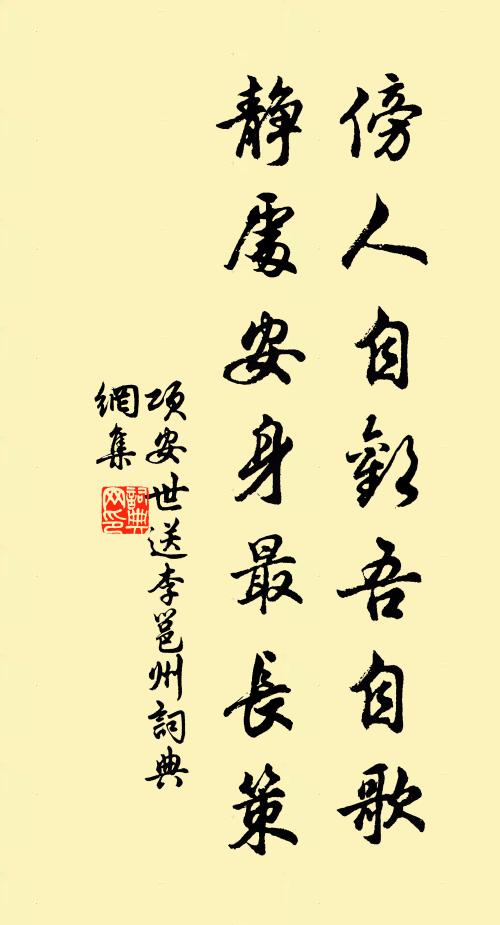 傍人自勸吾自歌
静處安身最長策
項安世送李邕州詞典
網集
詞典網印